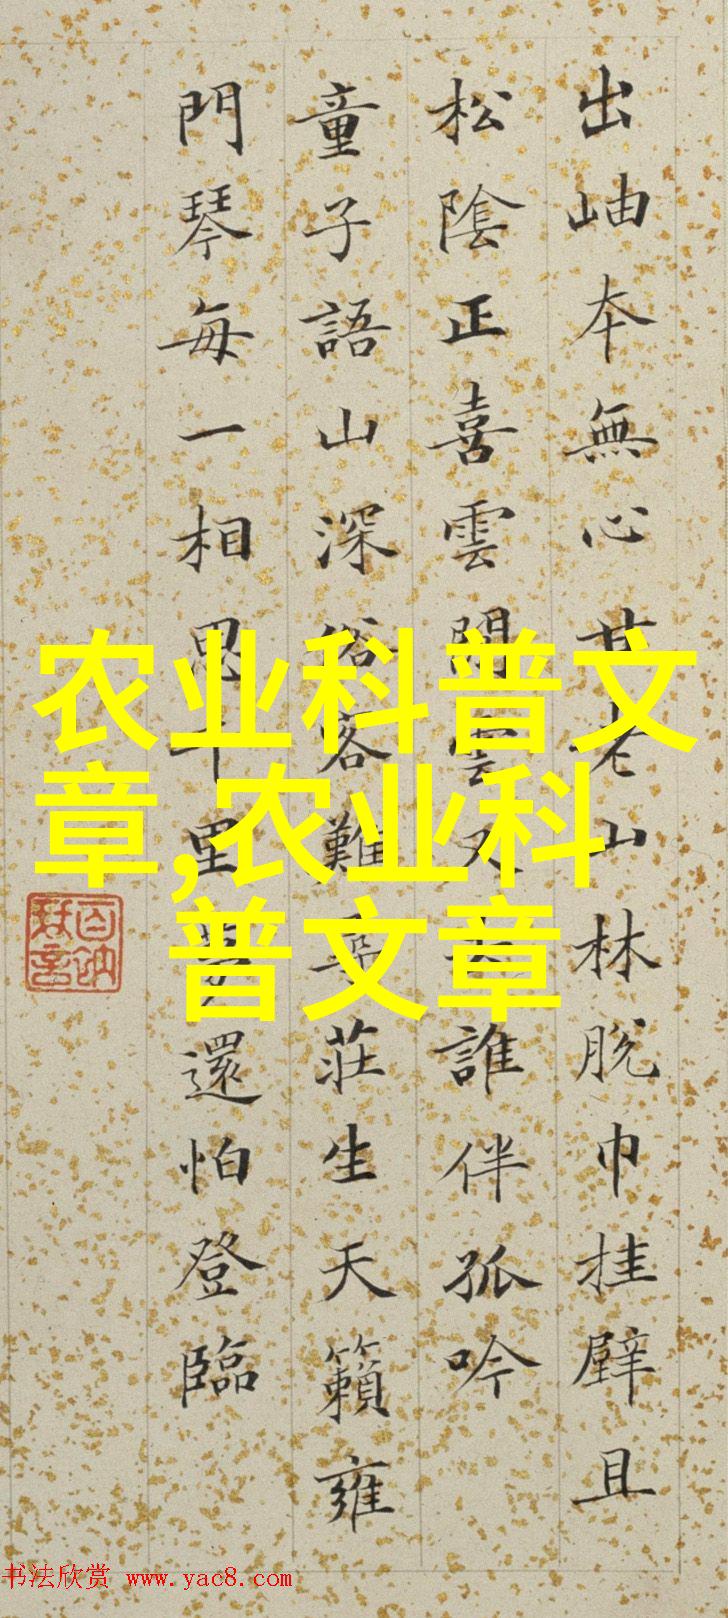 出岫本無心甘老山林脫巾挂壁且
松陰正喜雲閒雲又去誰伴孤吟
童子語山深俗客難尋莊生天籟雍
門琴每一相思千里夢還怕登臨
农业科普文
章,农业科
普文章
书法欣赏 www.yac8.com